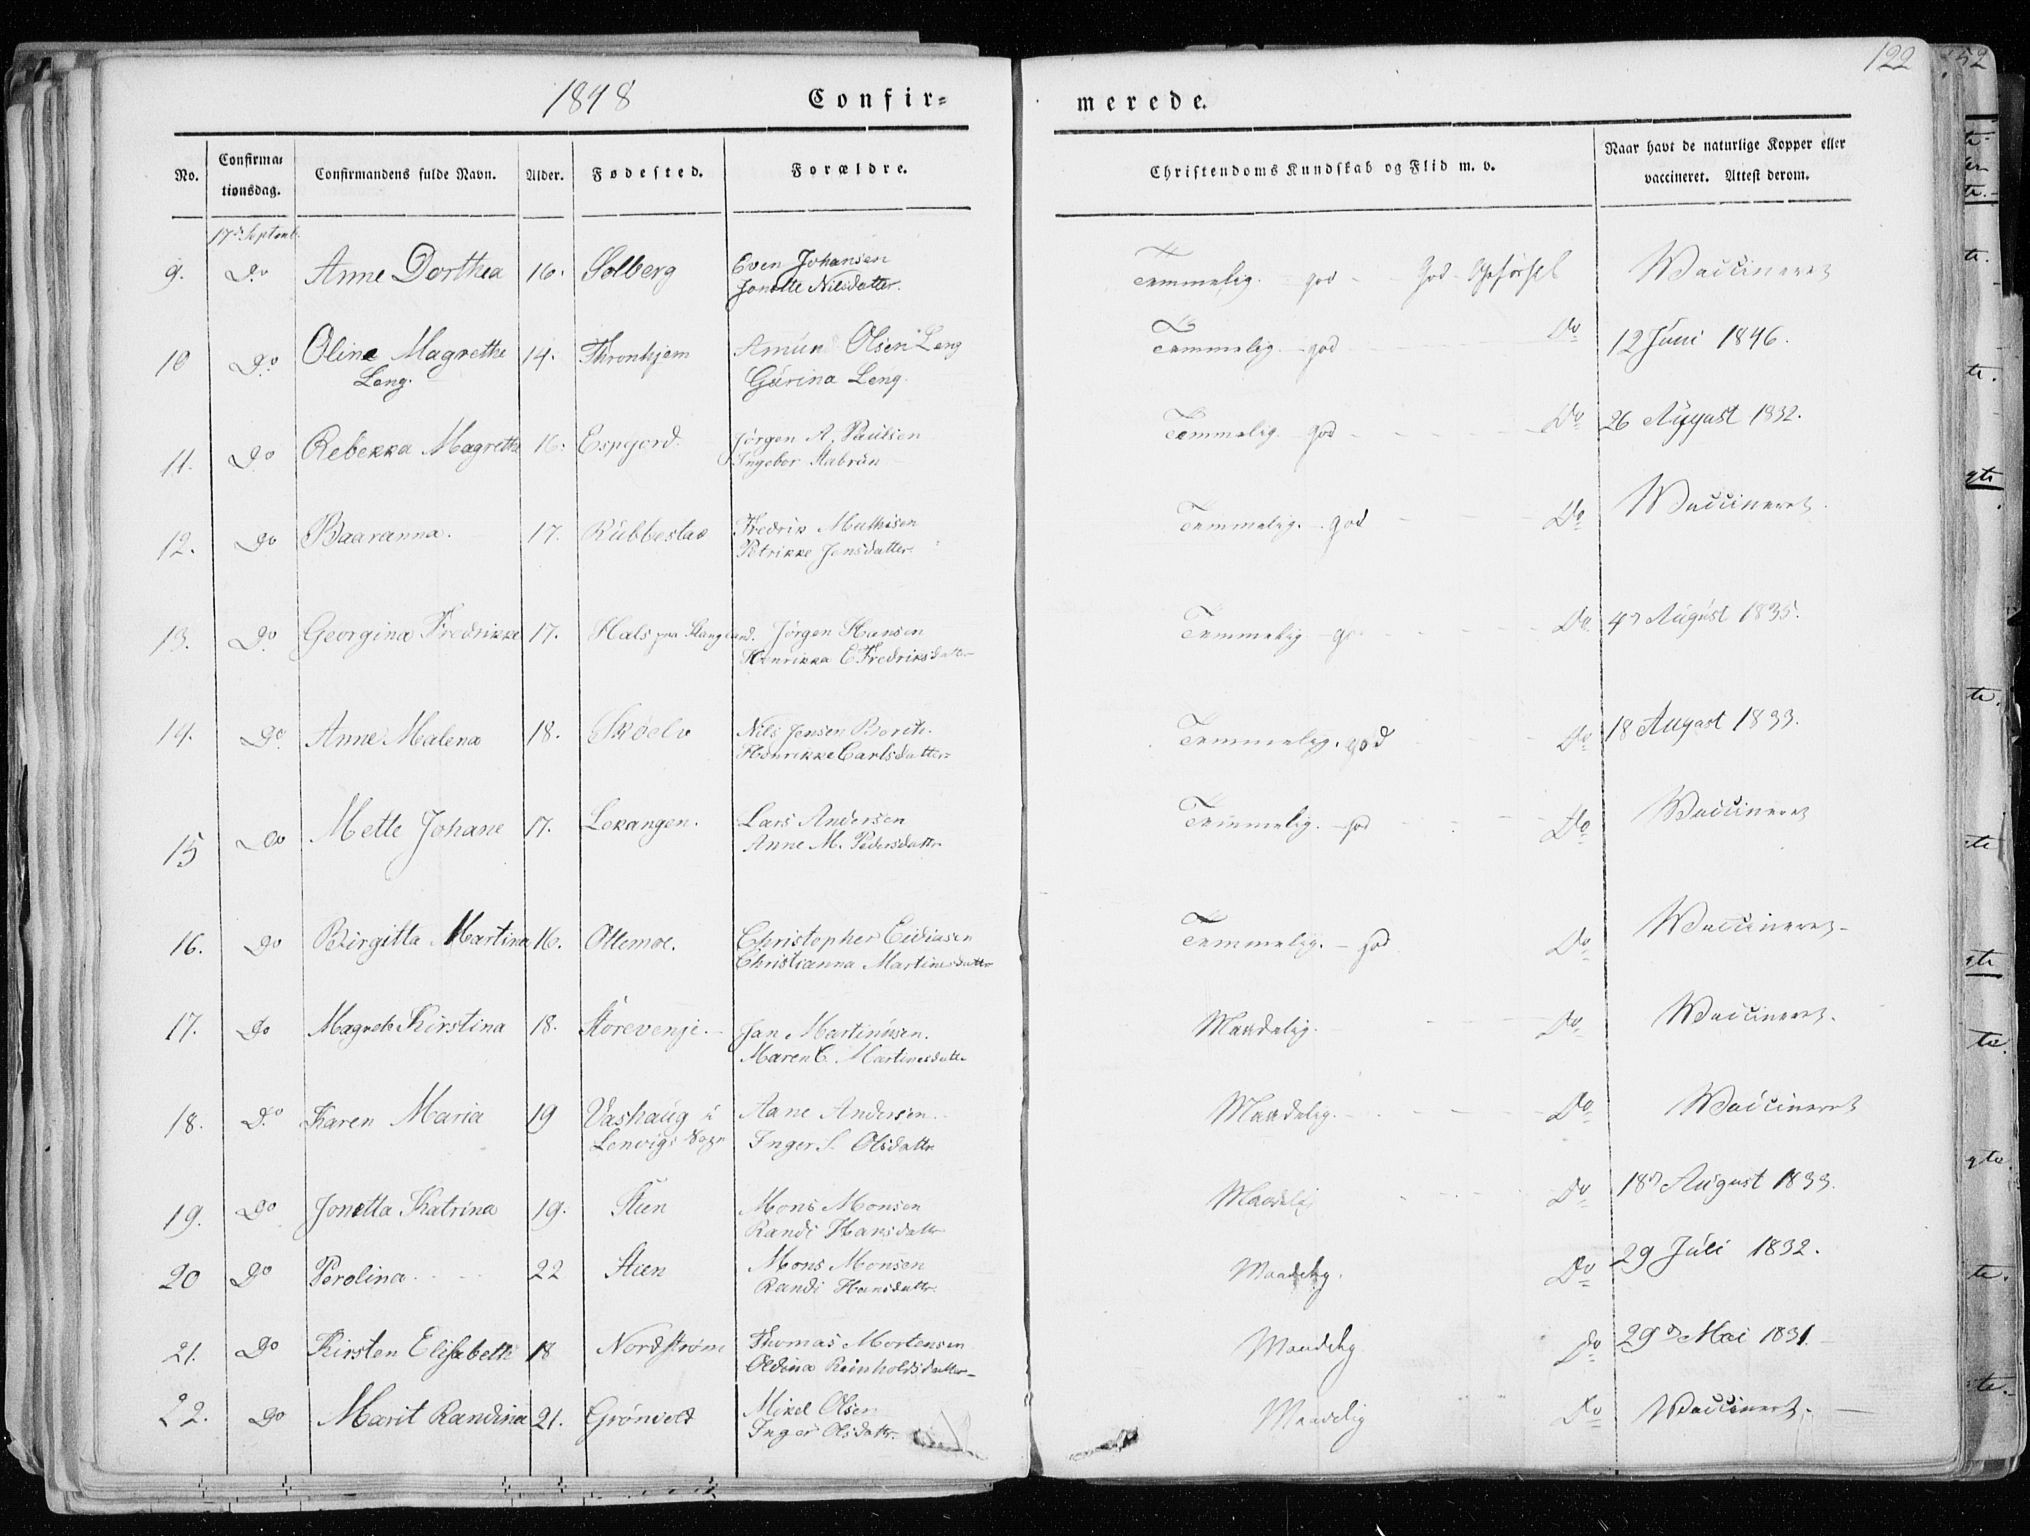 1848 Confir=
merede. 122
No. Confirma= tionsdag. Confirmandens fulde Navn. Alder. Fødested. Forældre. Christendoms Kundskab og Flid m. v. Naar havt de naturlige Kopper eller vaccineret. Attest derom.
17de Septemb.
9. Do Anne Dorthea 16. Solberg Even Johansen Temmelig - god - - God Opførsel Vaccineret
Jonette Nilsdatter.
10 Do Oline Magrethe 14. Thronhjem Amun Olsen Leng Temmelig - god Do 12 Juni 1846.
Leng. Gurina Leng.
11. Do Rebekka Magretha 16. Espejord. Jørgen A. Paulsen Temmelig - god Do 26 August 1832.
Ingebor
12. Do Baaranna. 17. Rubbestad Fredrik Mathisen Temmelig. - god Do Vaccineret.
Petrikke Jensdatter.
13. Do Georgina Fredrikke 17. Hals paa Stangland. Jørgen Hansen Temmelig - go Do 4de August 1835.
Henrikka C. Fredriksdatter
14. Do Anne Malena 18. Skøelv Nils Jensen Berith. Temmelig. god Do 18 August 1833.
Henrikke Carlsdatter
15 Do Mette Johane 17. Lekangen. Lars Andersen Temmelig. - god Do Vaccineret
Anne M. Pedersdatter
16. Do Birgitta Martina 16. Ottemoe. Christopher Eidiasen Temmelig. - god Do Vaccineret -
Christianna Martinesdatter
17. Do Magrete Kirstina 18. Storevenje. - Jan Martinusen. Maadelig. Do Vaccineret.
Maren C. Martinesdatter
18. Do Karen Maria 19 Vashaug i Aane Andersen. Maadelig. Do Vaccineret
Lenvigs Sogn Inger S. Olsdatter
19. Do Jonetta Katrina 19. Steen Mons Monsen Maadelig Do 18de August 1833.
Randi Hansdatter
20 Do Perolina 22 Steen Mons Monsen Maadelig. Do 29 Juli 1832.
Randi Hansdatter.
21. Do Kirsten Elisabeth 18 Nordstrøm Thomas Mortensen Maadelig Do 29de Mai 1831. -
Oldina Reinholdsdatter -
22. Do Marit Randina 21. Grönvold Mikel Olsen Maadelig Do Vaccineret. -
Inger Olsdatter.